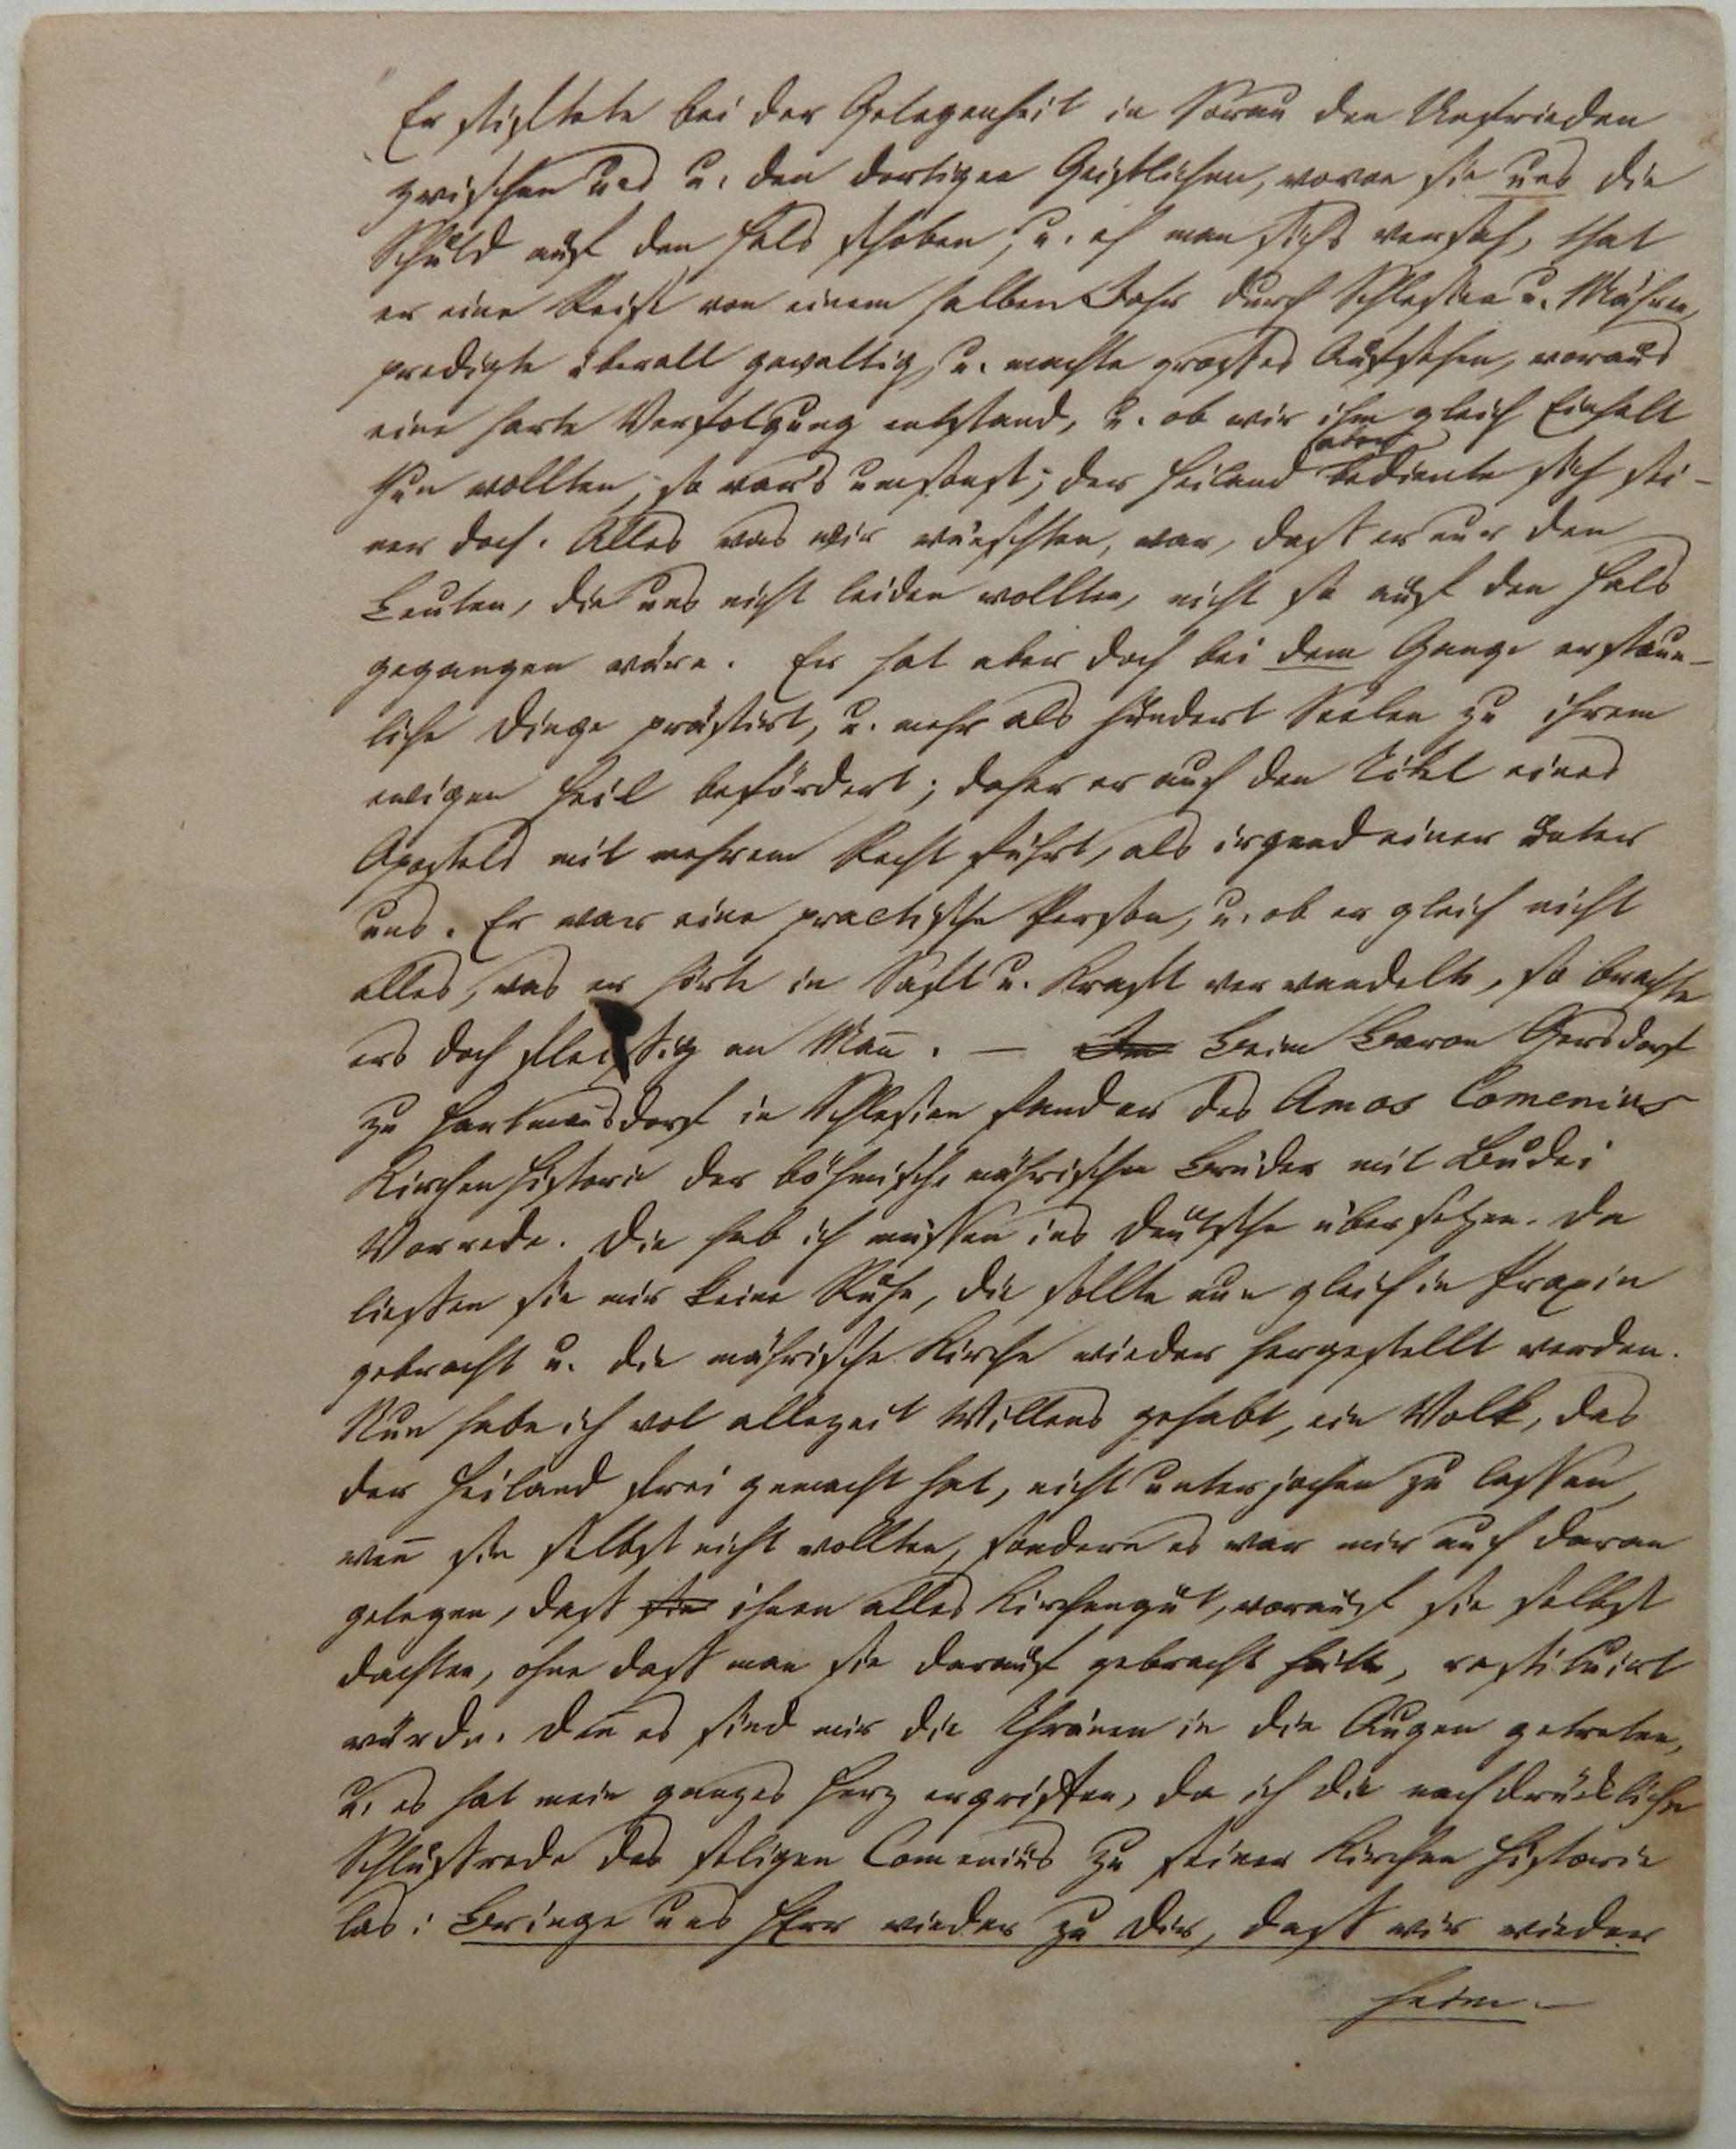 Er stiftete bei der Gelegenheit in Sorau den Unfrieden
zwischen uns u. den dortigen Geistlichen, wovon sie uns die
Schuld auf den Hals schoben, u. eh man sichs versah, that
er eine Reise von einem halben Jahr durch Schlesien u. Mähren,
predigte überall gewaltig, u. machte grosses Aufsehen, woraus
eine harte Verfolgung entstand, u. ob wir ihm gleich Einhalt
thun wollten, so war's umsonst; der Heiland aber bediente sich sei-
ner doch. Alles was wir wünschten, war, dass er nur den
Leuten, die uns nicht leiden wollten, nicht so auf den Hals
gegangen wäre. Er hat aber doch bei dem Gange erstaun-
liche Dinge prästirt, u. mehr als hundert Seelen zu ihrem
ewigen Heil befördert; daher er auch den Titel eines
Apostels mit mehrem Recht führt, als irgend einer unter
uns. Er war eine practische Person, u. ob er gleich nicht
alles, was er hörte in Saft u. Kraft verwandelte, so brachte
ers doch fleissig an Man̄. — Im Beim Baron Gersdorf
zu Hartman̄sdorf in Schlesien fand er des Amos Comenius
Kirchenhistorie der böhmisch-mährischen Brüder mit Budei
Vorrede. Die hab ich müssen ins Deutsche übersetzen. Da
liessen sie mir keine Ruhe, die sollte nun gleich in Praxin
gebracht u. die mährische Kirche wieder hergestellt werden.
Nun habe ich wol allezeit Willens gehabt, ein Volk, das
der Heiland frei gemacht hat, nicht unterjochen zu lassen,
wen̄ sie selbst nicht wollten, sondern es war mir auch daran
gelegen, dass sie ihnen alles Kirchengut, worauf sie selbst
dachten, ohne dass man sie darauf gebracht hätte, restituirt
würde. Den̄ es sind mir die Thränen in die Augen getreten,
u. es hat mein ganzes Herz ergriffen, da ich die nachdrückliche
Schlussrede des seligen Comenius zu seiner Kirchen Historie
las: Bringe uns Herr wieder zu Dir, dass wir wieder
heim-